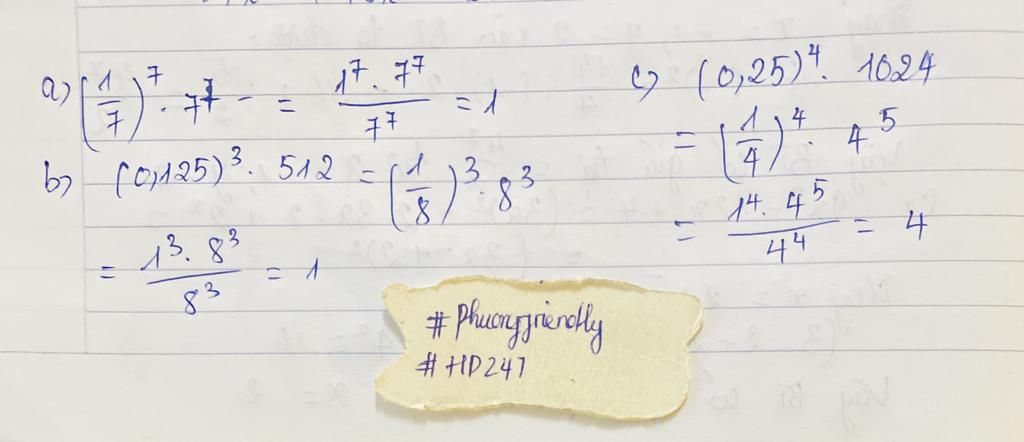 a) (1/7)^7 . 7^7 = (1^7 . 7^7)/7^7 = 1
b) (0,125)^3 . 512 = (1/8)^3 . 8^3
= (1^3 . 8^3)/8^3 = 1
c) (0,25)^4 . 1024
= (1/4)^4 . 4^5
= (1^4 . 4^5)/4^4 = 4
# Phuongfriendly
# HD247